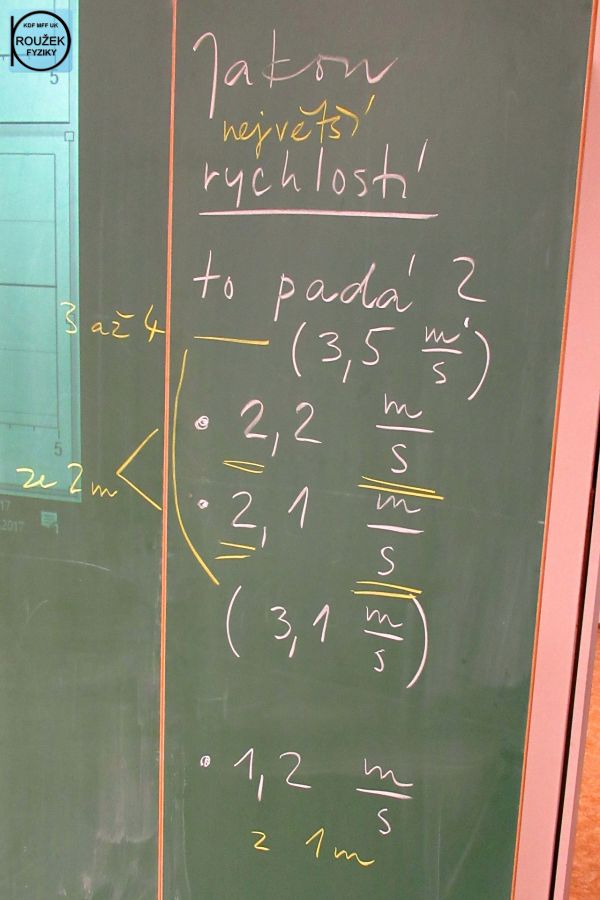 KDF MFF UK
ROUŽEK
FYZIKY
5
Jakou
největší
rychlostí
to padá ?
3 až 4
(3,5 m/s)
• 2,2 m/s
5
ze 2m
• 2,1 m/s
17
2017
(3,1 m/s)
• 1,2 m/s
z 1m